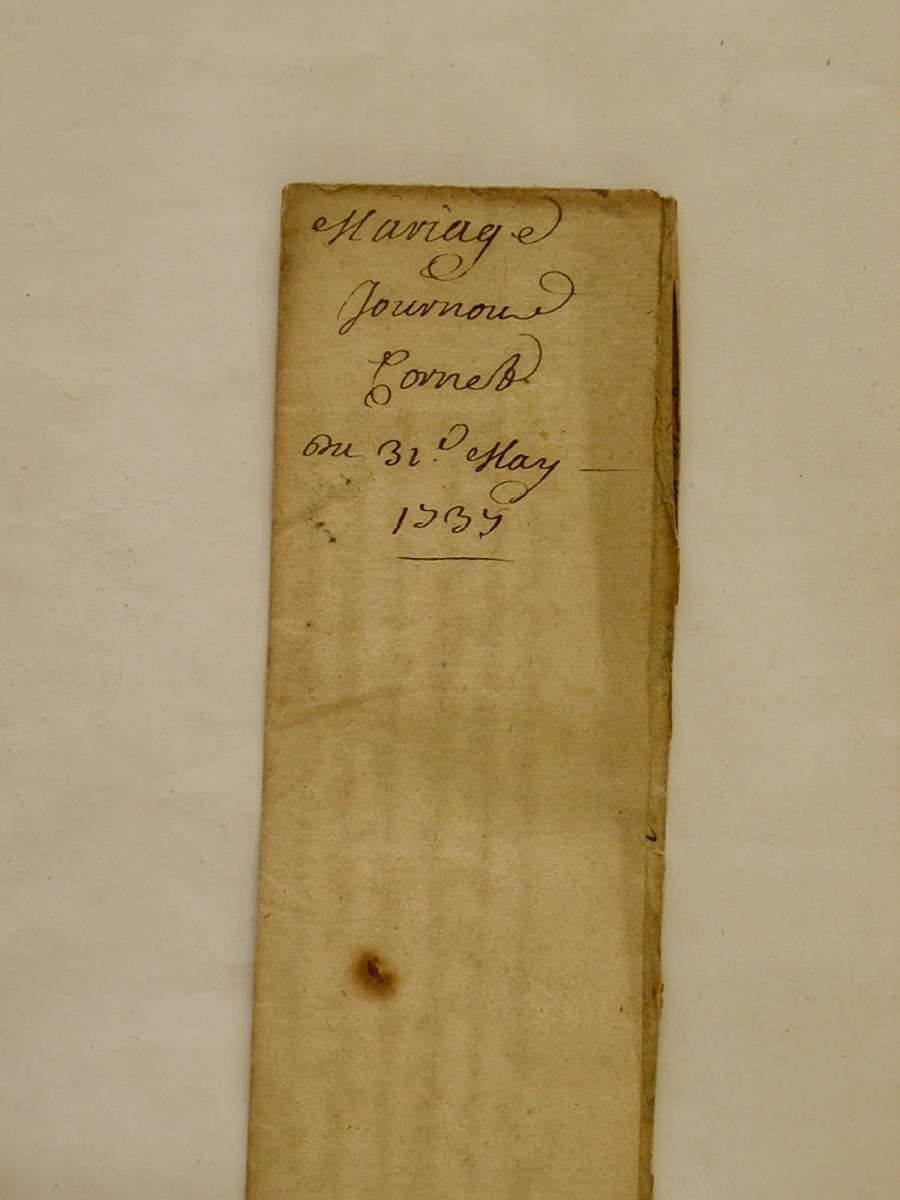 Mariage
Journoud
Cornet
Du 31.e May
1737